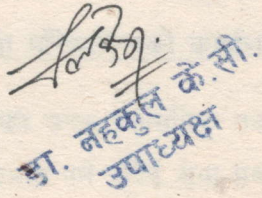 डा. नहकुल के.सी.
उपाध्यक्ष